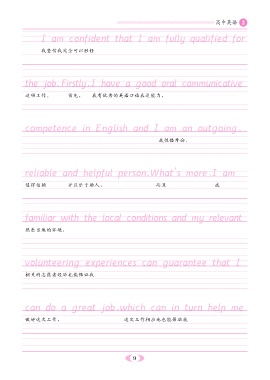 高中英语
I am confident that I am fully qualified for
我坚信我完全可以胜任
the job.Firstly,I have a good oral communicative
这项工作。 首先, 我有优秀的英语口语表达能力,
competence in English and I am an outgoing,
我性格外向、
reliable and helpful person.What's more,I am
值得信赖 并且乐于助人。 而且 我
familiar with the local conditions and my relevant
熟悉当地的环境,
volunteering experiences can guarantee that I
相关的志愿者经历也能保证我
can do a great job,which can in turn help me
做好这次工作, 这次工作相应地也能帮助我
9